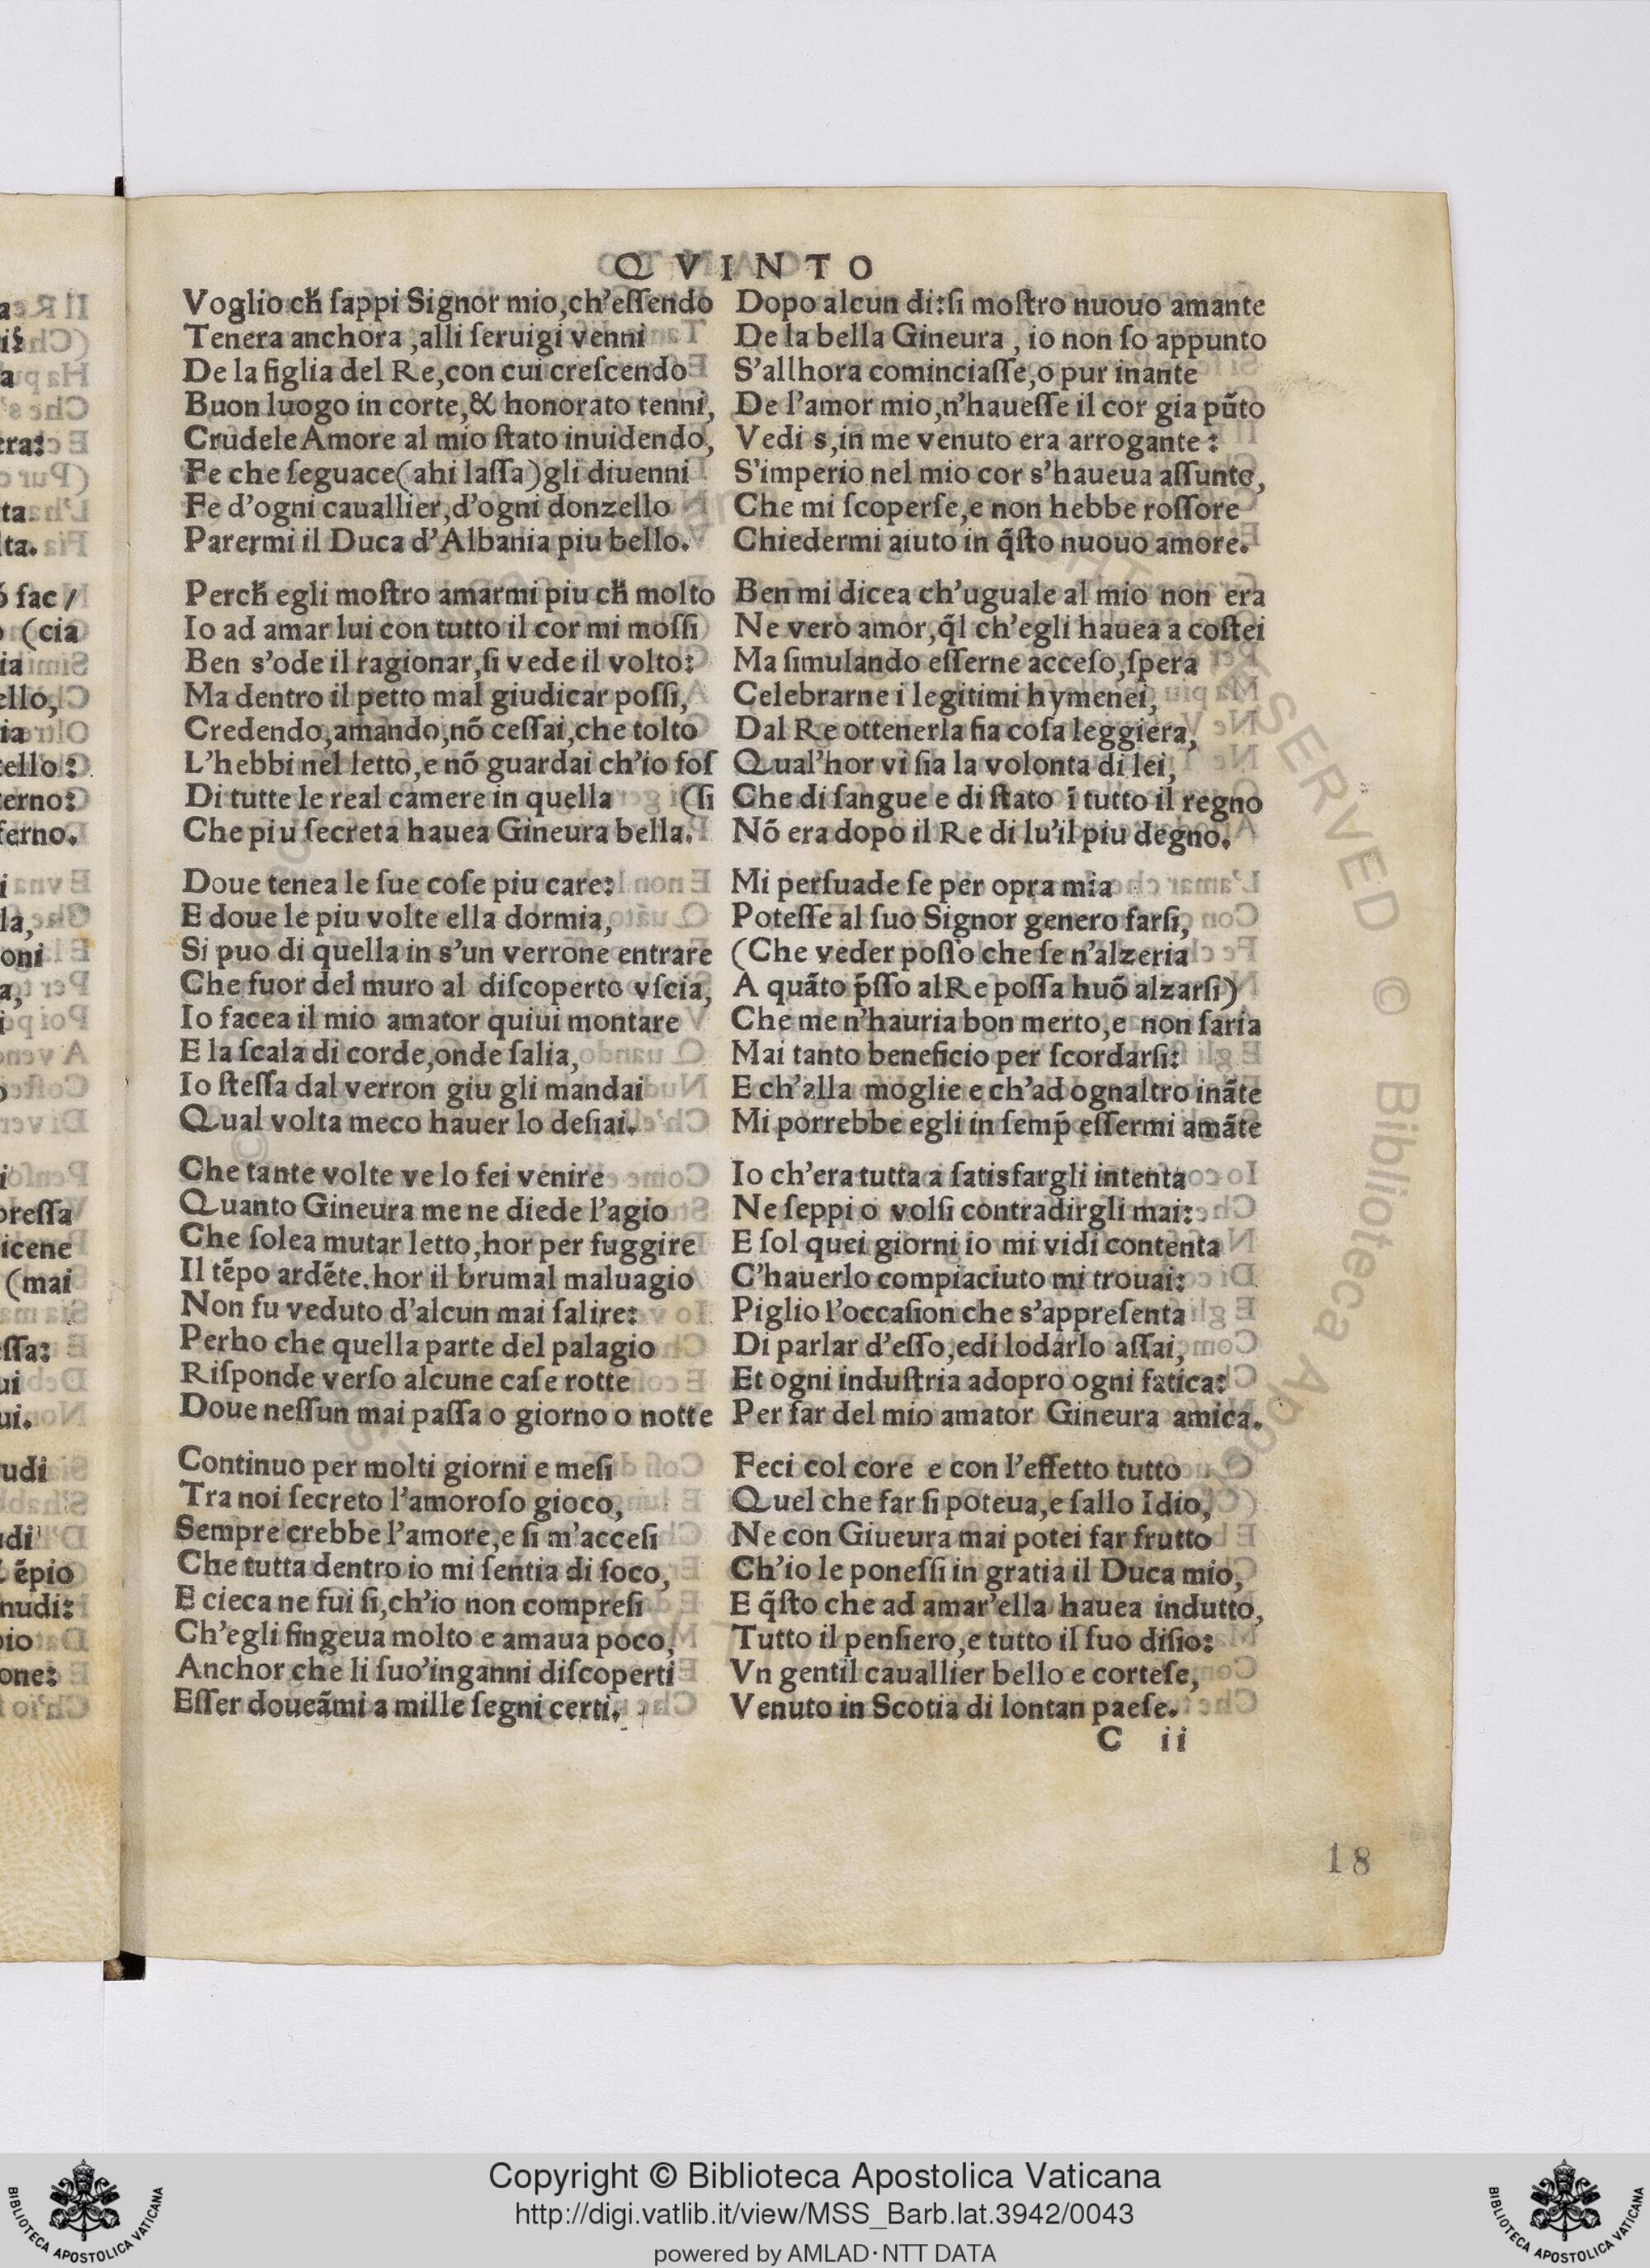 QVINTO
Voglio ch̄ ſappi Signor mio,ch'eſſendo
Tenera anchora ,alli ſeruigi venni
De la figlia del Re,con cui creſcendo
Buon luogo in corte,& honorato tenni,
Crudele Amore al mio ſtato inuidendo,
Fe che ſeguace(ahi laſſa)gli diuenni
Fe d'ogni cauallier,d'ogni donzello
Parermi il Duca d'Albania piu bello.
Perch̄ egli moſtro amarmi piu ch̄ molto
Io ad amar lui con tutto il cor mi moſſi
Ben s'ode il ragionar,ſi vede il volto:
Ma dentro il petto mal giudicar poſſi,
Credendo,amando,nō ceſſai,che tolto
L'hebbi nel letto,e nō guardai ch'io foſ
Di tutte le real camere in quella (ſi
Che piu ſecreta hauea Gineura bella.
Doue tenea le ſue coſe piu care:
E doue le piu volte ella dormia,
Si puo di quella in s'un verrone entrare
Che fuor del muro al diſcoperto vſcia,
Io facea il mio amator quiui montare
E la ſcala di corde,onde ſalia,
Io ſteſſa dal verron giu gli mandai
Qual volta meco hauer lo deſiai.
Che tante volte ve lo fei venire
Quanto Gineura me ne diede l'agio
Che ſolea mutar letto,hor per fuggire
Il tēpo ardēte.hor il brumal maluagio
Non fu veduto d'alcun mai ſalire:
Perho che quella parte del palagio
Riſponde verſo alcune caſe rotte
Doue neſſun mai paſſa o giorno o notte
Continuo per molti giorni e meſi
Tra noi ſecreto l'amoroſo gioco,
Sempre crebbe l'amore,e ſi m'acceſi
Che tutta dentro io mi ſentia di foco,
E cieca ne fui ſi,ch'io non compreſi
Ch'egli fingeua molto e amaua poco,
Anchor che li ſuo'inganni diſcoperti
Eſſer doueāmi a mille ſegni certi.
Dopo alcun di:ſi moſtro nuouo amante
De la bella Gineura , io non ſo appunto
S'allhora cominciaſſe,o pur inante
De l'amor mio,n'haueſſe il cor gia pūto
Vedi s,in me venuto era arrogante:
S'imperio nel mio cor s'haueua aſſunto,
Che mi ſcoperſe,e non hebbe roſſore
Chiedermi aiuto in q̄ſto nuouo amore.
Ben mi dicea ch'uguale al mio non era
Ne vero amor,q̄l ch'egli hauea a coſtei
Ma ſimulando eſſerne acceſo,ſpera
Celebrarne i legitimi hymenei,
Dal Re ottenerla fia coſa leggiera,
Qual'hor vi ſia la volonta di lei,
Che di ſangue e di ſtato ī tutto il regno
Nō era dopo il Re di lu'il piu degno.
Mi perſuade ſe per opra mia
Poteſſe al ſuo Signor genero farſi,
(Che veder poſſo che ſe n'alzeria
A quāto p̄ſſo al Re poſſa huō alzarſi)
Che me n'hauria bon merto,e non ſaria
Mai tanto beneficio per ſcordarſi:
E ch'alla moglie e ch'ad ognaltro ināte
Mi porrebbe egli in ſemp̄ eſſermi amāte
Io ch'era tutta a ſatisfargli intenta
Ne ſeppi o volſi contradirgli mai:
E ſol quei giorni io mi vidi contenta
C'hauerlo compiaciuto mi trouai:
Piglio l'occaſion che s'appreſenta
Di parlar d'eſſo,edi lodarlo aſſai,
Et ogni induſtria adopro ogni fatica:
Per far del mio amator Gineura amica.
Feci col core e con l'effetto tutto
Quel che far ſi poteua,e ſallo Idio,
Ne con Giueura mai potei far frutto
Ch'io le poneſſi in gratia il Duca mio,
E q̄ſto che ad amar'ella hauea indutto,
Tutto il penſiero,e tutto il ſuo diſio:
Vn gentil cauallier bello e corteſe,
Venuto in Scotia di lontan paeſe.
C ii
18
Copyright © Biblioteca Apostolica Vaticana
http://digi.vatlib.it/view/MSS_Barb.lat.3942/0043
powered by AMLAD·NTT DATA
BIBLIOTECA APOSTOLICA VATICANA
BIBLIOTECA APOSTOLICA VATICANA